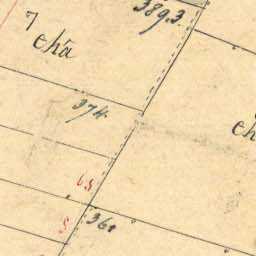 389.3
7
chă
374
ch
68
8
360